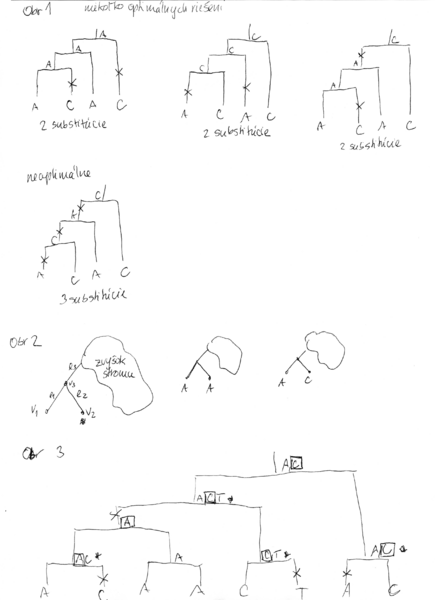 Obr 1 niekoľko optimálnych riešení
A C C
A C A
A C A
A C A C A C A C A C A C
2 substitúcie 2 substitúcie 2 substitúcie
neoptimálne
C
A
C
A C A C
3 substitúcie
Obr 2
zvyšok
stromu
v3
l2
v1 v2
A A A C
Obr 3
A C
A C T *
A
A C * A C T * A C *
A C A A C T A C